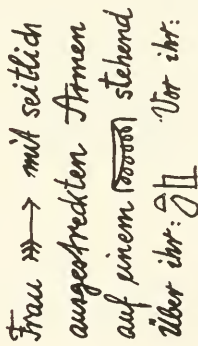 Frau mit seitlich
ausgestreckten Armen
auf einem stehend
Über ihr: Vor ihr: